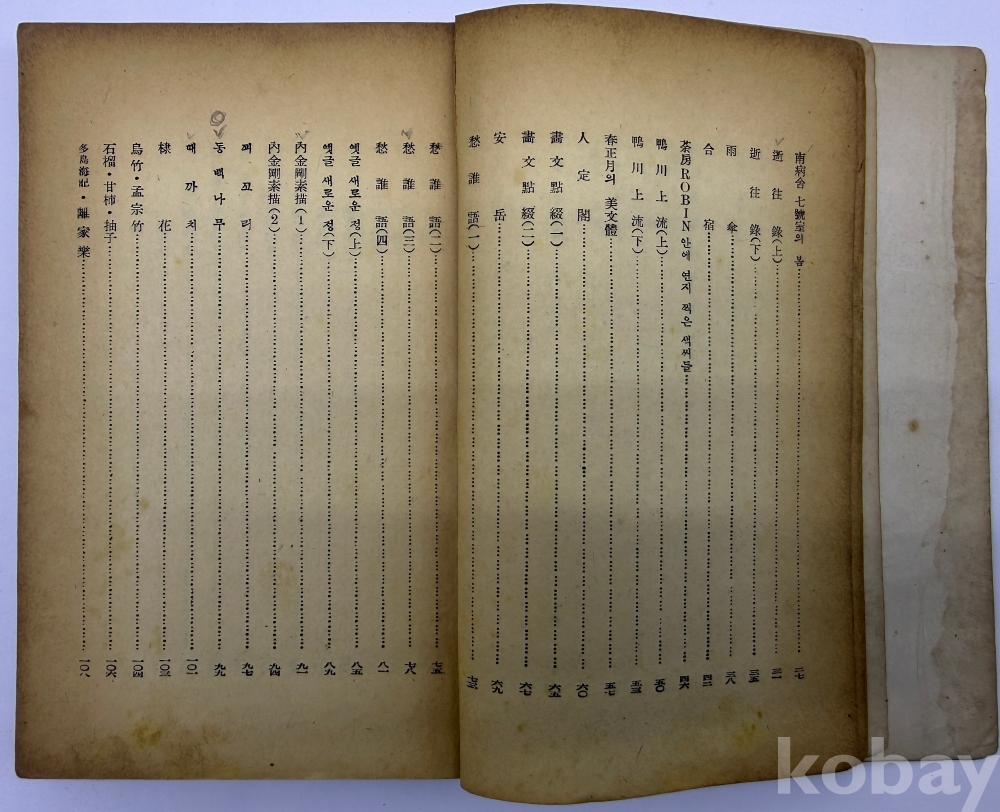 南病舍 七號室의 봄 二七
逝往錄(上) 三一
逝往錄(下) 三五
雨傘 三八
合宿 四二
茶房ROBIN 안에 연지 찍은 색씨들 四六
鴨川上流(上) 五〇
鴨川上流(下) 五三
春正月의 美文體 五七
人定閣 六〇
畵文點綴(一) 六五
畵文點綴(二) 六七
安岳 六九
愁誰語(一) 七三
愁誰語(二) 七五
愁誰語(三) 七八
愁誰語(四) 八一
옛글 새로운 정(上) 八五
옛글 새로운 정(下) 八九
內金剛素描(1) 九一
內金剛素描(2) 九四
꾀꼬리 九七
동백나무 九九
때까치 一〇一
棣花 一〇三
烏竹・孟宗竹 一〇四
石榴・甘柿・柚子 一〇六
多島海記・離家樂 一〇八
kobay